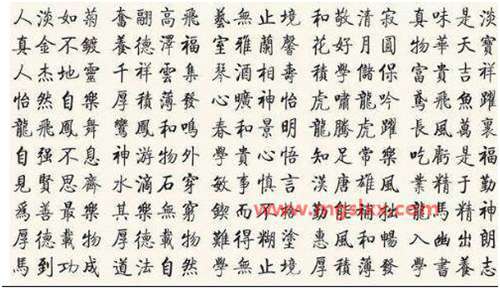 人淡如菊 奮翮高飛 藝無止境 和敬清寂 真味是淡
真金不鍍 養德澤福 室雅蘭馨 花好月圓 物華天寶
人杰地靈 千祥雲集 琴酒相壽 積學儲保 富貴吉祥
怡然自樂 厚積薄發 心曠神怡 虎嘯龍吟 鳶飛魚躍
龍飛鳳舞 鸞鳳和鳴 春和景明 龍騰虎躍 長風萬裏
自强不息 神游物外 學貴心悟 知足常樂 吃虧是福
見賢思齊 水滴石穿 敏事慎言 漢唐雄風 業精于勤
爲善最樂 其樂無窮 鍥而不 勤補拙 龍馬精神
厚德載物 厚德載物 難得糊塗 惠風和暢 入幽出朗
馬到功成 道法自然 學無止境 厚積薄發 學書養志